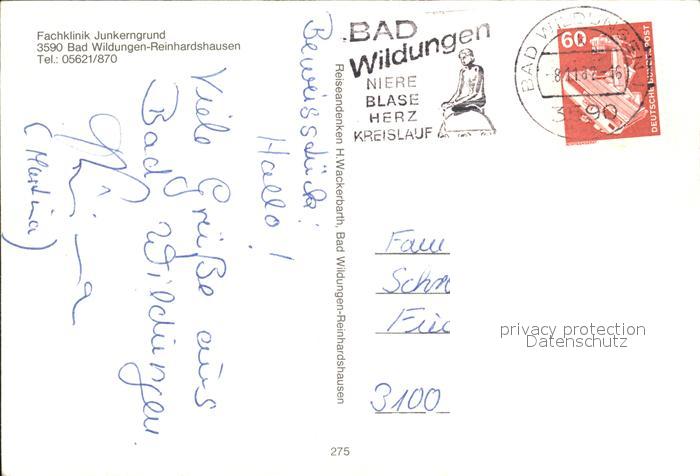 Fachklinik Junkerngrund
3590 Bad Wildungen-Reinhardshausen
Tel.: 05621/870
Beweisstück!
Hallo!
Viele Grüße aus
Bad Wildungen
(Martina)
Reiseandenken H.Wackerbarth, Bad Wildungen-Reinhardshausen
275
BAD
Wildungen
NIERE
BLASE
HERZ
KREISLAUF
BAD WILDUNGEN
3590
60
DEUTSCHE BUNDESPOST
Fam
Schm
3100
privacy protection
Datenschutz